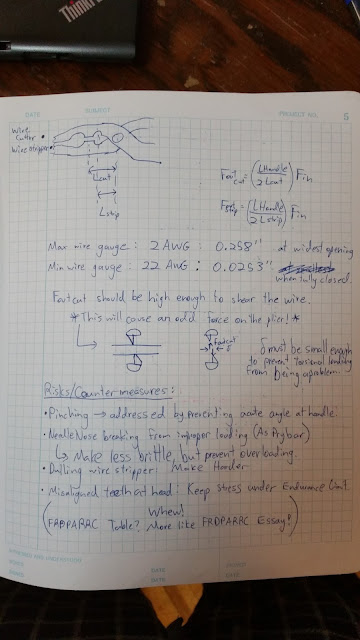 ThinkPad
DATE
SUBJECT
PROJECT NO.
5
Wire
Cutter
Wire stripper
Lcut
Lstrip
Fout cut = (LHandle / 2 Lcut) Fin
Fout strip = (LHandle / 2 Lstrip) Fin
Max wire gauge : 2 AWG : 0.258" at widest opening
Min wire gauge : 22 AWG : 0.0253" when fully closed.
Foutcut should be high enough to shear the wire.
*This will cause an odd force on the plier!*
Foutcut
δ
δ must be small enough
to prevent torsional loading
from being a problem.
Risks/Countermeasures:
• Pinching → addressed by preventing acute angle at handle.
• Needle Nose breaking from improper loading (As Prybar)
↳ Make less brittle, but prevent overloading.
• Dulling wire stripper: Make Harder
• Misaligned teeth at head: Keep stress under Endurance Limit.
Whew!
(FRDPARRC Table? More like FRDPARRC Essay!)
DATE
DATE